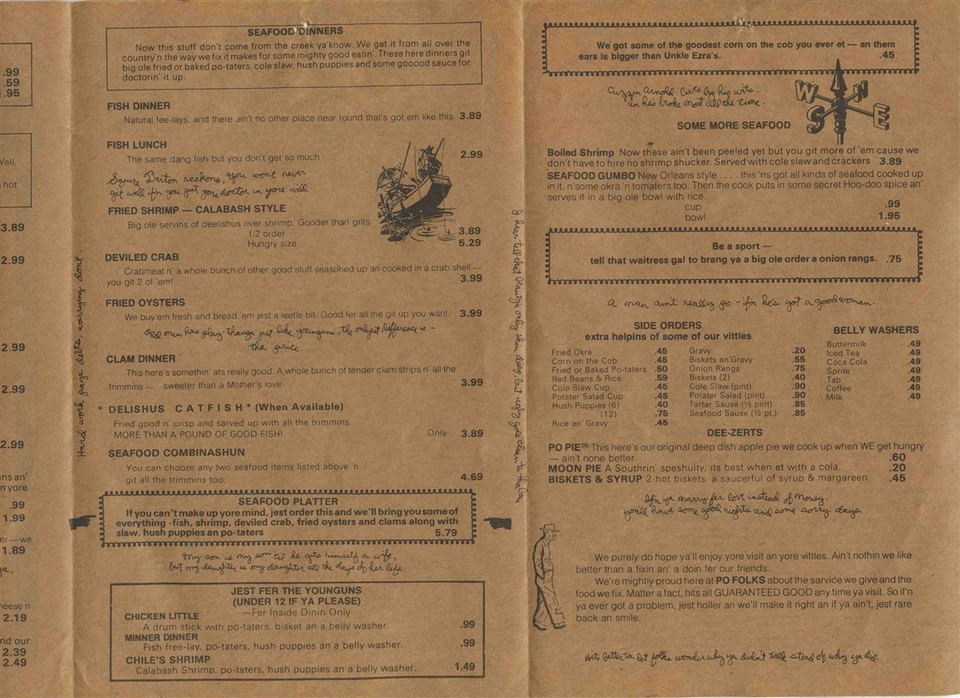 .99
.59
.95
Vell,
hot
3.89
2.99
2.99
2.99
2.99
ns an'
n yore
.99
1.99
er — we
1.89
ya,
heese n
2.19
nd our
2.39
2.49
Hard work pays debts, worrying don't.
SEAFOOD DINNERS
Now this stuff don't come from the creek ya'know. We get it from all over the
country'n the way we fix it makes for some mighty good eatin'. These here dinners git
big ole fried or baked po-taters, cole slaw, hush puppies and some gooood sauce for
doctorin' it up.
FISH DINNER
Natural fee-lays, and there ain't no other place near round that's got em like this. 3.89
FISH LUNCH
The same dang fish but you don't get so much 2.99
Squire Burton reckons, you won't never
get well fin you put you doctor in you will
FRIED SHRIMP — CALABASH STYLE
Big ole servins of deelishus river shrimp. Gooder than grits.
1/2 order 3.89
Hungry size 5.29
DEVILED CRAB
Crabmeat n' a whole bunch of other good stuff seasoned up an cooked in a crab shell —
you git 2 of 'em! 3.99
FRIED OYSTERS
We buy em fresh and bread 'em jest a leetle bit. Good fer all the git up you want. 3.99
Old men has play-things just like younguns, the onliest difference is -
the price.
CLAM DINNER
This here's somethin' ats really good. A whole bunch of tender clam strips n' all the
trimmins — sweeter than a Mother's love. 3.99
* DELISHUS CATFISH * (When Available)
Fried good n' crisp and sarved up with all the trimmins
MORE THAN A POUND OF GOOD FISH! Only 3.89
SEAFOOD COMBINASHUN
You can chooze any two seafood items listed above 'n
git all the trimmins too. 4.69
SEAFOOD PLATTER
If you can't make up yore mind, jest order this and we'll bring you some of
everything -fish, shrimp, deviled crab, fried oysters and clams along with
slaw, hush puppies an po-taters 5.79
My son is my son til he gets himself a wife,
but my daughter is my daughter all the days of her life
JEST FER THE YOUNGUNS
(UNDER 12 IF YA PLEASE)
—Fer Inside Dinin Only
CHICKEN LITTLE
A drum stick with po-taters, bisket an a belly washer. .99
MINNER DINNER
Fish free-lay, po-taters, hush puppies an a belly washer. .99
CHILE'S SHRIMP
Calabash Shrimp, po-taters, hush puppies an a belly washer. 1.49
I hear tell that beauty's only skin deep but ugly goes clean to the bone
We got some of the goodest corn on the cob you ever et — an them
ears is bigger than Unkle Ezra's. .45
Cuzzin Arnold lives by his wits-
an he's broke most all the time.
W N S E
SOME MORE SEAFOOD
Boiled Shrimp Now these ain't been peeled yet but you git more of 'em cause we
don't have to hire no shrimp shucker. Served with cole slaw and crackers 3.89
SEAFOOD GUMBO New Orleans style . . . . this 'ns got all kinds of seafood cooked up
in it, n'some okra 'n tomaters too. Then the cook puts in some secret Hoo-doo spice an'
serves it in a big ole bowl with rice.
cup .99
bowl 1.95
Be a sport —
tell that waitress gal to brang ya a big ole order a onion rangs. .75
A man aint really go - fin he's got a good woman
SIDE ORDERS
extra helpins of some of our vittles
Fried Okra .45
Corn on the Cob .45
Fried or Baked Po-taters .60
Red Beans & Rice .59
Cole Slaw Cup .45
Potater Salad Cup .45
Hush Puppies (6) .40
(12) .75
Rice an' Gravy .45
Gravy .20
Biskets an'Gravy .55
Onion Rangs .75
Biskets (2) .40
Cole Slaw (pint) .90
Potater Salad (pint) .90
Tartar Sause (½ pint) .85
Seafood Sause (½ pt.) .85
BELLY WASHERS
Buttermilk .49
Iced Tea .49
Coca Cola .49
Sprite .49
Tab .49
Coffee .49
Milk .49
DEE-ZERTS
PO PIE This here's our original deep dish apple pie we cook up when WE get hungry
— ain't none better. .60
MOON PIE A Southrin' speshulty, its best when et with a cola. .20
BISKETS & SYRUP 2 hot biskets, a saucerful of syrup & margareen. .45
If'n ya marry fer love instead of money,
you'll have some good nights and some sorry days.
We purely do hope ya'll enjoy yore visit an yore vittles. Ain't nothin we like
better than a fixin' an' a doin fer our friends.
We're mightly proud here at PO FOLKS about the sarvice we give and the
food we fix. Matter a fact, hits all GUARANTEED GOOD any time ya visit. So if'n
ya ever got a problem, jest holler an we'll make it right an if ya ain't, jest rare
back an smile.
Hits better ta let folks wonder why ya didn't talk stead of why ya did.